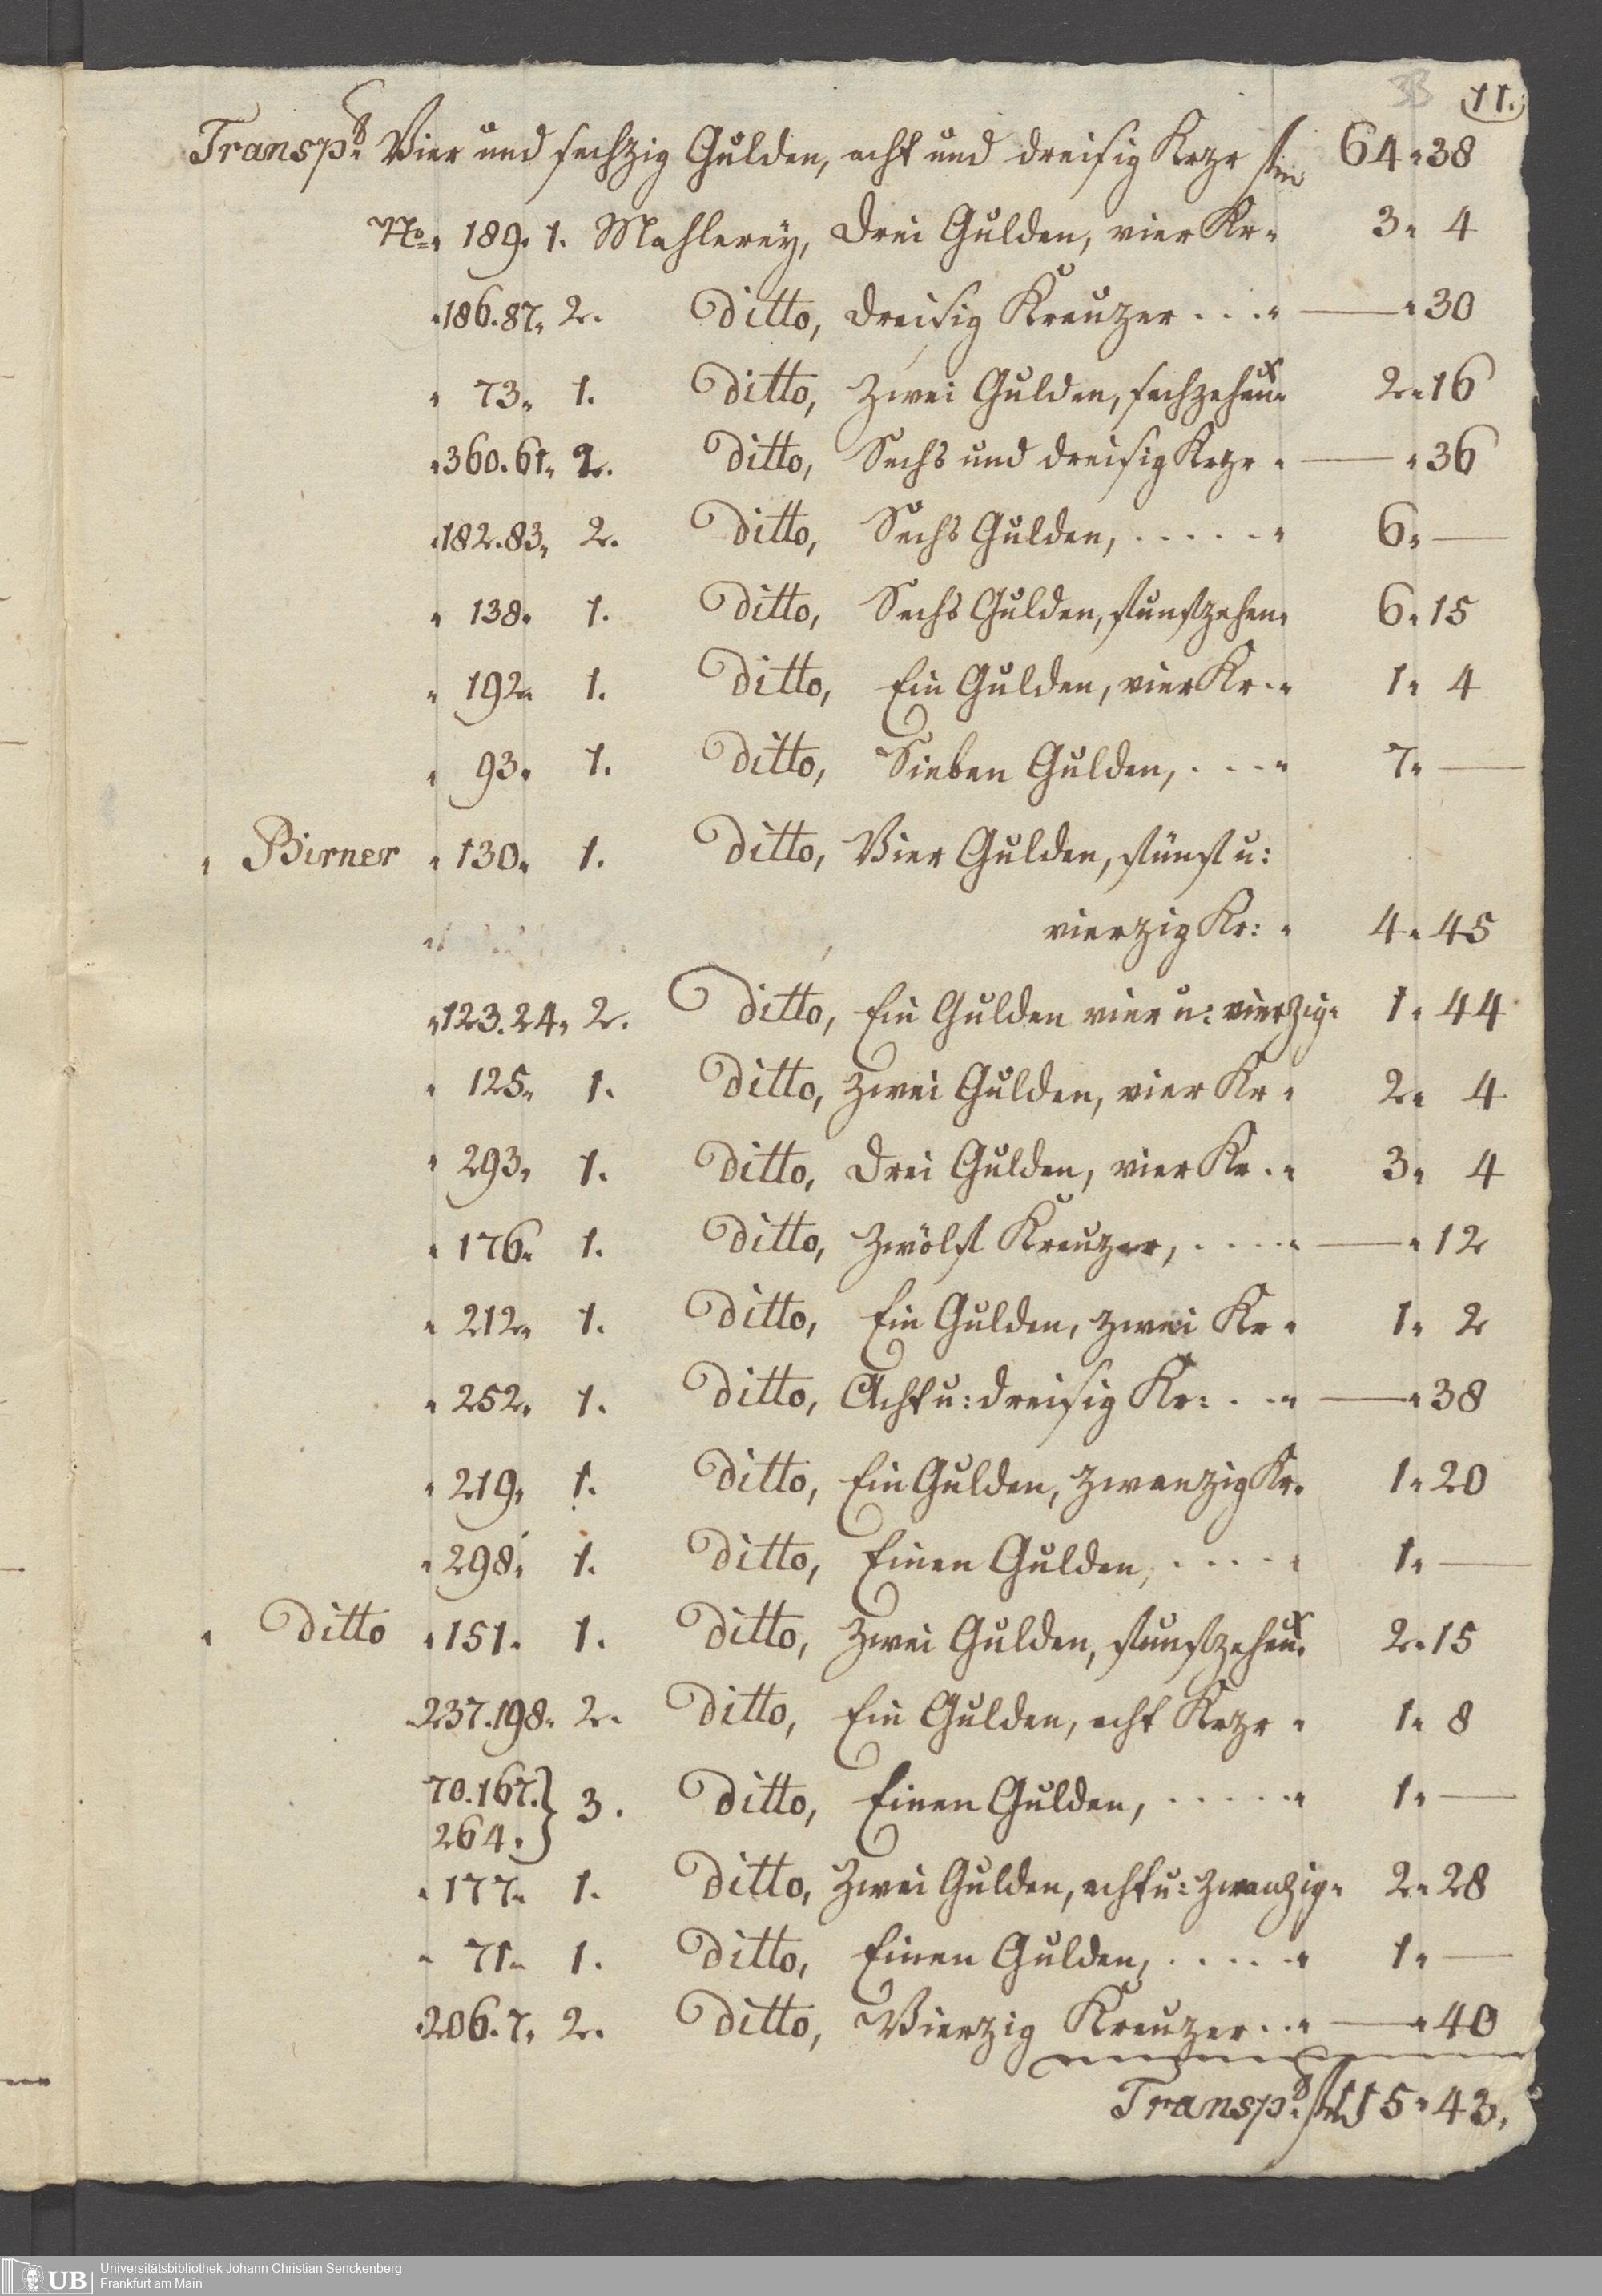 33 11.
Transp.d Vier und sechzig Gulden, acht und dreisig Krzr f 64 " 38
No " 189. 1. Mahlereÿ, Drei Gulden, vier Kr " 3 " 4
" 186. 87 " 2. Ditto, Dreisig Kreuzer . . . " — " 30
" 73 " 1. Ditto, Zwei Gulden, sechzehen x " 2 " 16
" 360. 61 " 2. Ditto, Sechs und dreisig Krzr " — " 36
" 182. 83 " 2. Ditto, Sechs Gulden, . . . . . " 6 " —
" 138 " 1. Ditto, Sechs Gulden, funfzehen " 6 " 15
" 192 " 1. Ditto, Ein Gulden, vier Kr . " 1 " 4
" 93 " 1. Ditto, Sieben Gulden, . . . " 7 " —
" Birner " 130 " 1. Ditto, Vier Gulden, fünf u:
vierzig Kr: " 4 " 45
" 123. 24 " 2. Ditto, Ein Gulden vier u: vierzig " 1 " 44
" 125 " 1. Ditto, Zwei Gulden, vier Kr " 2 " 4
" 293 " 1. Ditto, Drei Gulden, vier Kr . " 3 " 4
" 176 " 1. Ditto, Zwölf Kreuzer, . . . . " — " 12
" 212 " 1. Ditto, Ein Gulden, zwei Kr " 1 " 2
" 252 " 1. Ditto, Acht u: dreisig Kr: . . " — " 38
" 219 " 1. Ditto, Ein Gulden, zwanzig Kr " 1 " 20
" 298 " 1. Ditto, Einen Gulden, . . . . " 1 " —
" Ditto " 151 " 1. Ditto, Zwei Gulden, funfzehen x " 2 " 15
" 237. 198 " 2. Ditto, Ein Gulden, acht Krzr " 1 " 8
70. 167. } 3. Ditto, Einen Gulden, . . . . . " 1 " —
264 "
" 177 " 1. Ditto, Zwei Gulden, acht u: zwanzig " 2 " 28
" 71 " 1. Ditto, Einen Gulden, . . . . . " 1 " —
" 206. 7 " 2. Ditto, Vierzig Kreuzer . . " — " 40
Transp.d f 115 " 43,
UB Universitätsbibliothek Johann Christian Senckenberg
Frankfurt am Main